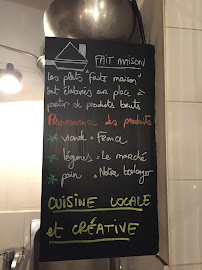 FAIT MAISON
Les plats "faits maison"
sont élaborés sur place à
partir de produits bruts
Provenance des produits
* viande = France
* légumes = Le marché
* pain = Notre boulanger
CUISINE LOCALE
et CRÉATIVE